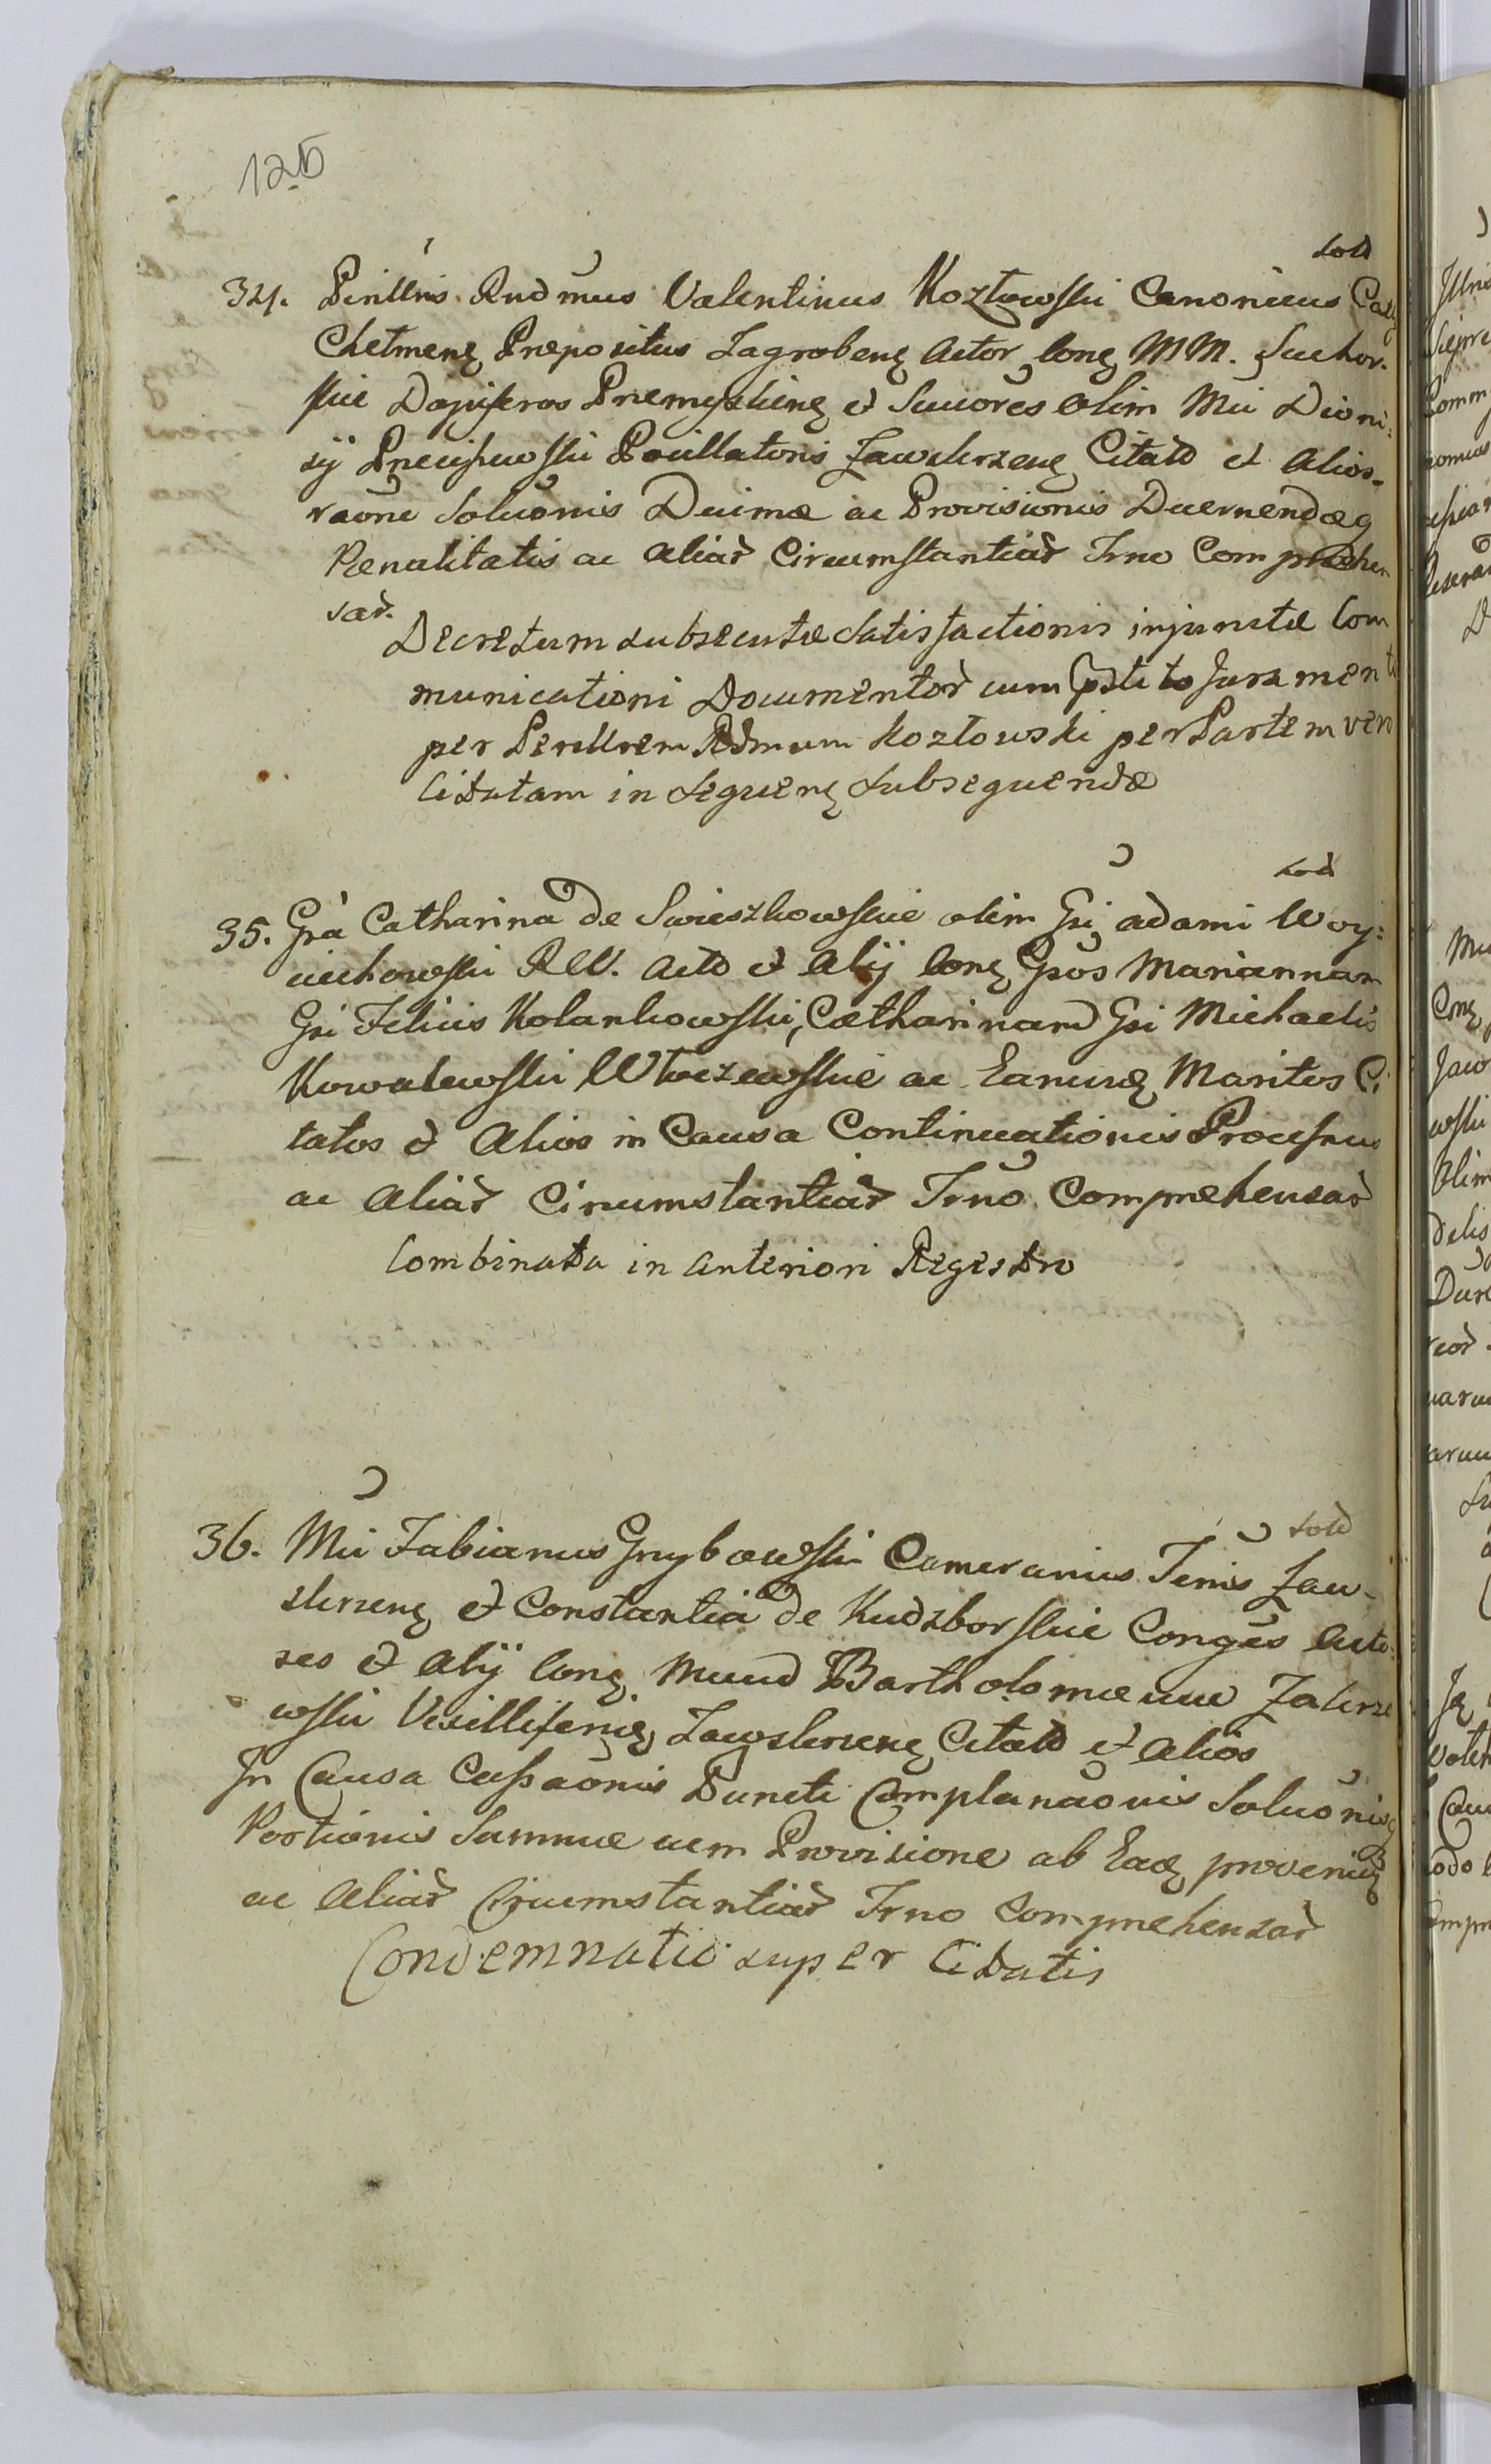 125
sold
34. Perillris Rndmus Valentinus Kozłowski Canonicus
Chelmenę Præpositus Zagrobenę Actor Conę MM. Suchor-
skie Dapiferos Przemyslienę et Succōres olim Mci Dioni:
sÿ Pocillatoris Zawskrzenę Citatō et Alios
raōne Soluōnis Decimæ ac Provisionis Decernendæq
Pœnalitatis ac aliar̄ Circumstantiar̄ Trno Compræhen
sar̄.
Decretum subsecutæ Satisfactionis injunctæ Com
municationi Documentor̄ cum Juramen
per Perillrem Rdmum Kozłowski per Partem
Citatam in sequenę subsequendæ
sod
35. Gsa Catharina de Swieszkowskie olim Gsi adami Woy:
ciechowski REL. Acto et Alÿ Conę Gsos Mariannam
Gsi Felicis Kolankowski, Catharinam Gsi Michaelis
Kowalewski ac Earundę Maritos Ci
tatos et Alios in Causa Continuationis Processus
ac Aliar̄ Circumstantiar̄ Trno Compræhensar̄
Combinata in anteriori Regestro
sold
36. Mci Fabianus Grzybowski Camerarius Trris Zaw-
skrzenę et Constantia de Kudzborskie Conges Acto
res et Alÿ Conę Mcum Bartholomæum Zakrze
wski Vexilliferię Zawskrzenę Citatō et Alios
In Causa Cassaōnis Puncti Complanaōnis Soluōnis
Portionis Summæ cum Provisione ab Eadę provenię
ac Aliar̄ Circumstantiar̄ Trno Compræhensar̄
Condemnatio super Citatis